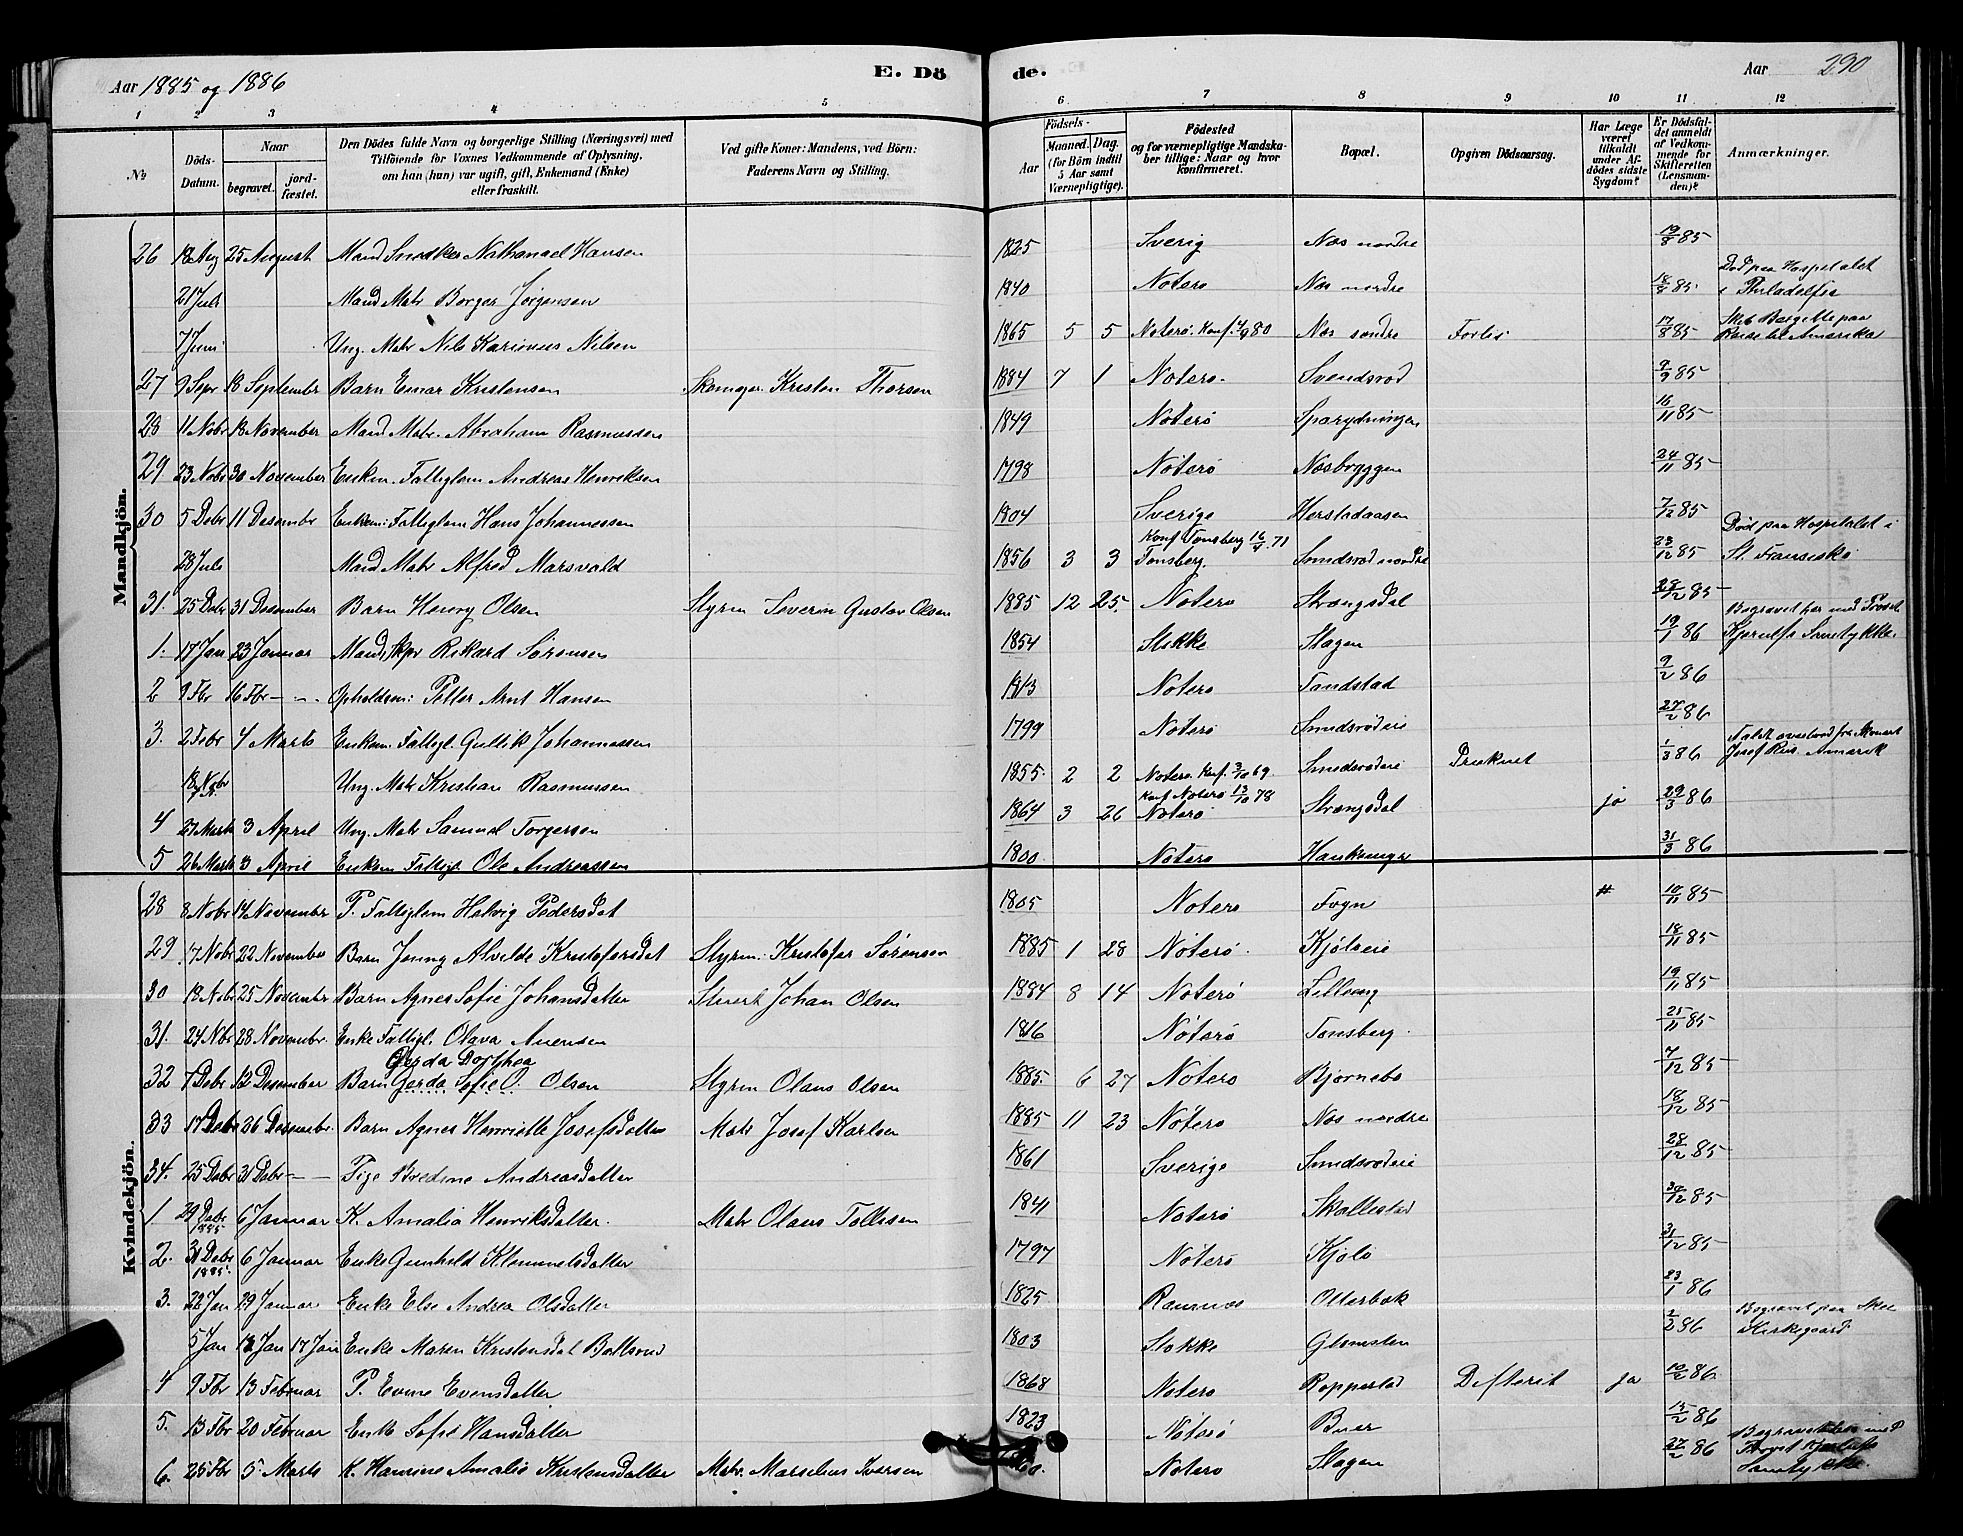 Aar 1885 og 1886
E. Dö
de.
Aar 290
1 2 3 4 5 6 7 8 9 10 11 12
No
Döds-Datum.
Naar
begravet.
jord-fæstet.
Den Dödes fulde Navn og borgerlige Stilling (Næringsvei) med
Tilföiende for Voxnes Vedkommende af Oplysning,
om han (hun) var ugift, gift, Enkemand (Enke)
eller fraskilt.
Ved gifte Koner: Mandens, ved Börn:
Faderens Navn og Stilling.
Födsels-
Aar
Maaned. Dag.
(for Börn indtil
5 Aar samt
Værnepligtige).
Födested
og for værnepligtige Mandska-
ber tillige: Naar og hvor
konfirmeret.
Bopæl.
Opgiven Dödsaarsag.
Har Læge
været
tilkaldt
under Af-
dödes sidste
Sygdom?
Er Dödsfal-
det anmeldt
af Vedkom-
mende for
Skifteretten
(Lensman-
den)?
Anmærkninger.
Mandkjön.
26 18 Aug 25 August Mand Snedker Nathanael Hansen 1825 Sverig Nes nordre 19/8 85
21 Juli Mand Matr Borger Jörgensen 1840 Noterö Nes nordre 18/8 85 Död paa Hospitalet i Philadelfia
7 Juni Ung. Matr Nils Karinius Nilsen 1865 5 5 Noterö. Konf. 4/9 80 Nes söndre Forlis 17/8 85 paa Reise til Amerika
27 9 Sepr 18 Septembr Barn Einar Kristensen Kristen Thorsen 1884 7 1 Noterö. Svendsrod 9/9 85
28 11 Nobr 18 November Mand Matr. Abraham Rasmussen 1849 Noterö 16/11 85
29 23 Nobr 30 November Enkem. Fattiglem Andreas Henriksen 1798 Nöterö Nesbryggen 24/11 85
30 5 Debr 11 Desembr Enkem: Fattiglem Hans Johannessen 1804 Sverige Herstadaasen 7/12 85
28 Juli Mand Matr Alfred Marsvold 1856 3 3 Konf Tonsberg 16/4 71 Tonsberg. Smidsrod nordre 23/12 85 Död paa Hospitalet i St. Fransisko
31. 25 Debr 31 Desember Barn Henry Olsen Styrm Severin Gustav Olsen 1885 12 25. Noterö Strengsdal 28/12 85
1. 17 Jan 23 Januar Mand, Skpr Rikard Sörensen 1854 Stokke Slagen 19/1 86 Begravet her med Provst Kjerulfs Samtykke.
2 9 Fbr 16 Fbr — Opholdsm: Petter Arnt Hansen 1813 Noterö Tandstad 9/2 86
3. 2 Febr 4 Marts Enkem. Fattigl. Gullik Johannessen 1799 Noterö Smidsrödeie 27/2 86
18 Nobr Ung. Matr Kristian Rasmussen 1855. 2 2 Noterö. Konf. 3/10 69. Smidsrödeie Druknet 1/3 86 Faldt overbord fra
4 27 Marts 3 April Ung. Matr Samuel Torgersen 1864 3 26 Konf Noterö 13/10 78 Noterö Strengsdal ja 29/3 86
5 26 Marts 3 April Enkem Fattigl. Ole Andreassen 1800 Noterö 31/3 86
Kvindekjön.
28 8 Nobr 14 November P. Fattiglem Helvig Pedersdat 1805 Noterö Fogn # 10/11 85
29 17 Nobr 22 November Barn Jenny Alvilde Kristofersdat Styrm. Kristofer Sörensen 1885 1 28 Nöterö. Kjöleie 18/11 85
30 18 Nobr 25 November Barn Agnes Sofie Johansdatter Stuert Johan Olsen 1884 8 14 Nöterö 19/11 85
31. 24 Nbr 28 Novembr. Enke Fattigl. Olava Auensen 1816 Nöterö Tonsberg. 25/11 85
Gerda Dorthea
32 7 Debr 12 Desember Barn Gerda Sofie O. Olsen Styrm Olaus Olsen 1885. 6 27 Noterö Bjornebo 7/12 85
33 17 Debr 26 Desembr. Barn Agnes Henriette Josefsdatter Matr Josef Karlsen 1885 11 23 Nöterö Nes nordre 18/12 85
34. 25 Debr 31 Debr — Pige Bredine Andreasdatter 1861 Sverige Smidsrodeie 28/12 85
1 29 Debr 1885 6 Januar K. Amalia Henriksdatter. Matr Olaus Tollesen 1841 Noterö Skallestad 30/12 85
2. 31 Debr 1885. 6 Januar Enke Gunhild Klemmetsdatter 1797 Nöterö Kjölö 31/12 85
3. 22 Jan 29 Januar Enke Else Andrea Olsdatter 1825 Ramnes Otterbek 23/1 86
5 Jan 12 Jan 17 Jan Enke Maren Kristensdat Bollerud 1803 Stokke Glomsten 2/2 86 Begravet paa Kirkegaard.
4 9 Fbr 13 Februar P. Evine Evensdatter 1868 Noterö Ropperstad Difterit ja 10/2 86
5. 13 Fbr 20 Februar Enke Sofie Hansdatter 1823 Nöterö Buer 15/2 86
6. 25 Fbr 5 Marts K. Hanrine Amalie Kristensdatter Matr. Marselius Iversen Noterö Slagen 27/2 86 Begravet med Provst Kjerulfs Samtykke